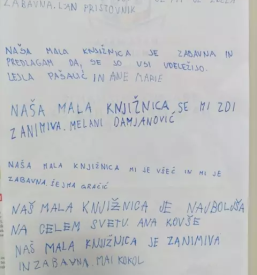 ZABAVNA. LAN PRISTOVNIK
NAŠA MALA KNJIŽNICA JE ZABAVNA IN
PREDLAGAM DA, SE JO VSI UDELEŽIJO.
LEJLA PAŠALIĆ IN ANE MARIE
NAŠA MALA KNJIŽNICA, SE MI ZDI
ZANIMIVA. MELANI DAMJANOVIĆ
NAŠA MALA KNJIŽNICA MI JE VŠEČ IN MI JE
ZABAVNA ŠEJMA GRAČIČ
NAŠ MALA KNJIŽNICA JE NAJBOLJŠA
NA CELEM SVETU. ANA KOVŠE
NAŠ MALA KNJIŽNICA JE ZANIMIVA
IN ZABAVNA. MAI KOKOL